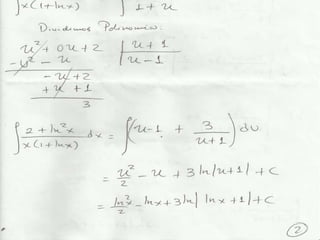 ∫ x(1+lnx) ∫ 1+u
Dividimos Polinomio:
u² + 0u + 2 | u + 1
-u² - u | u - 1
- u + 2
+ u + 1
3
∫ 2 + ln²x / x(1+lnx) dx = ∫ (u-1 + 3/u+1) du
= u²/2 - u + 3 ln|u+1| + C
= ln²x/2 - lnx + 3 ln| lnx + 1| + C
2